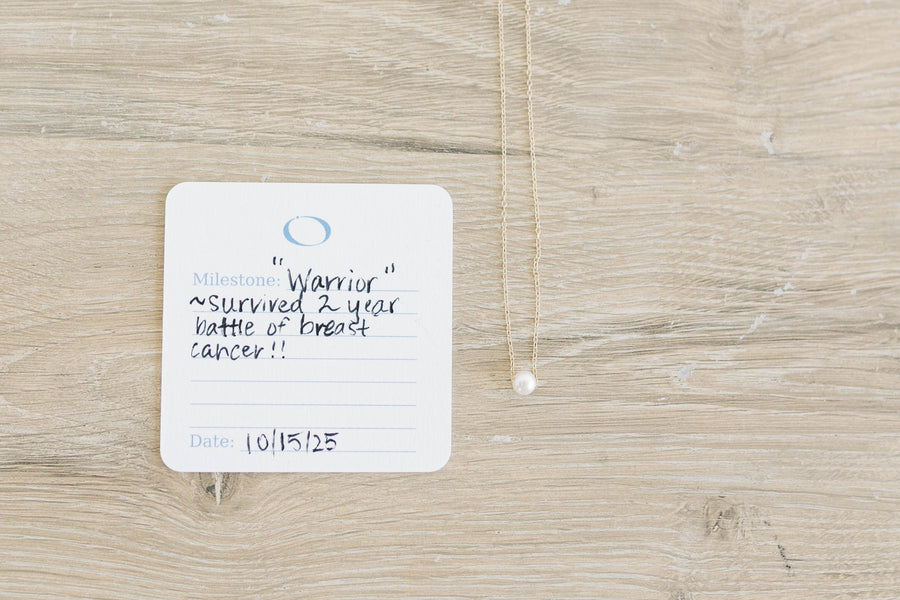 Milestone: "Warrior"
~Survived 2 year
battle of breast
cancer!!
Date: 10/15/25